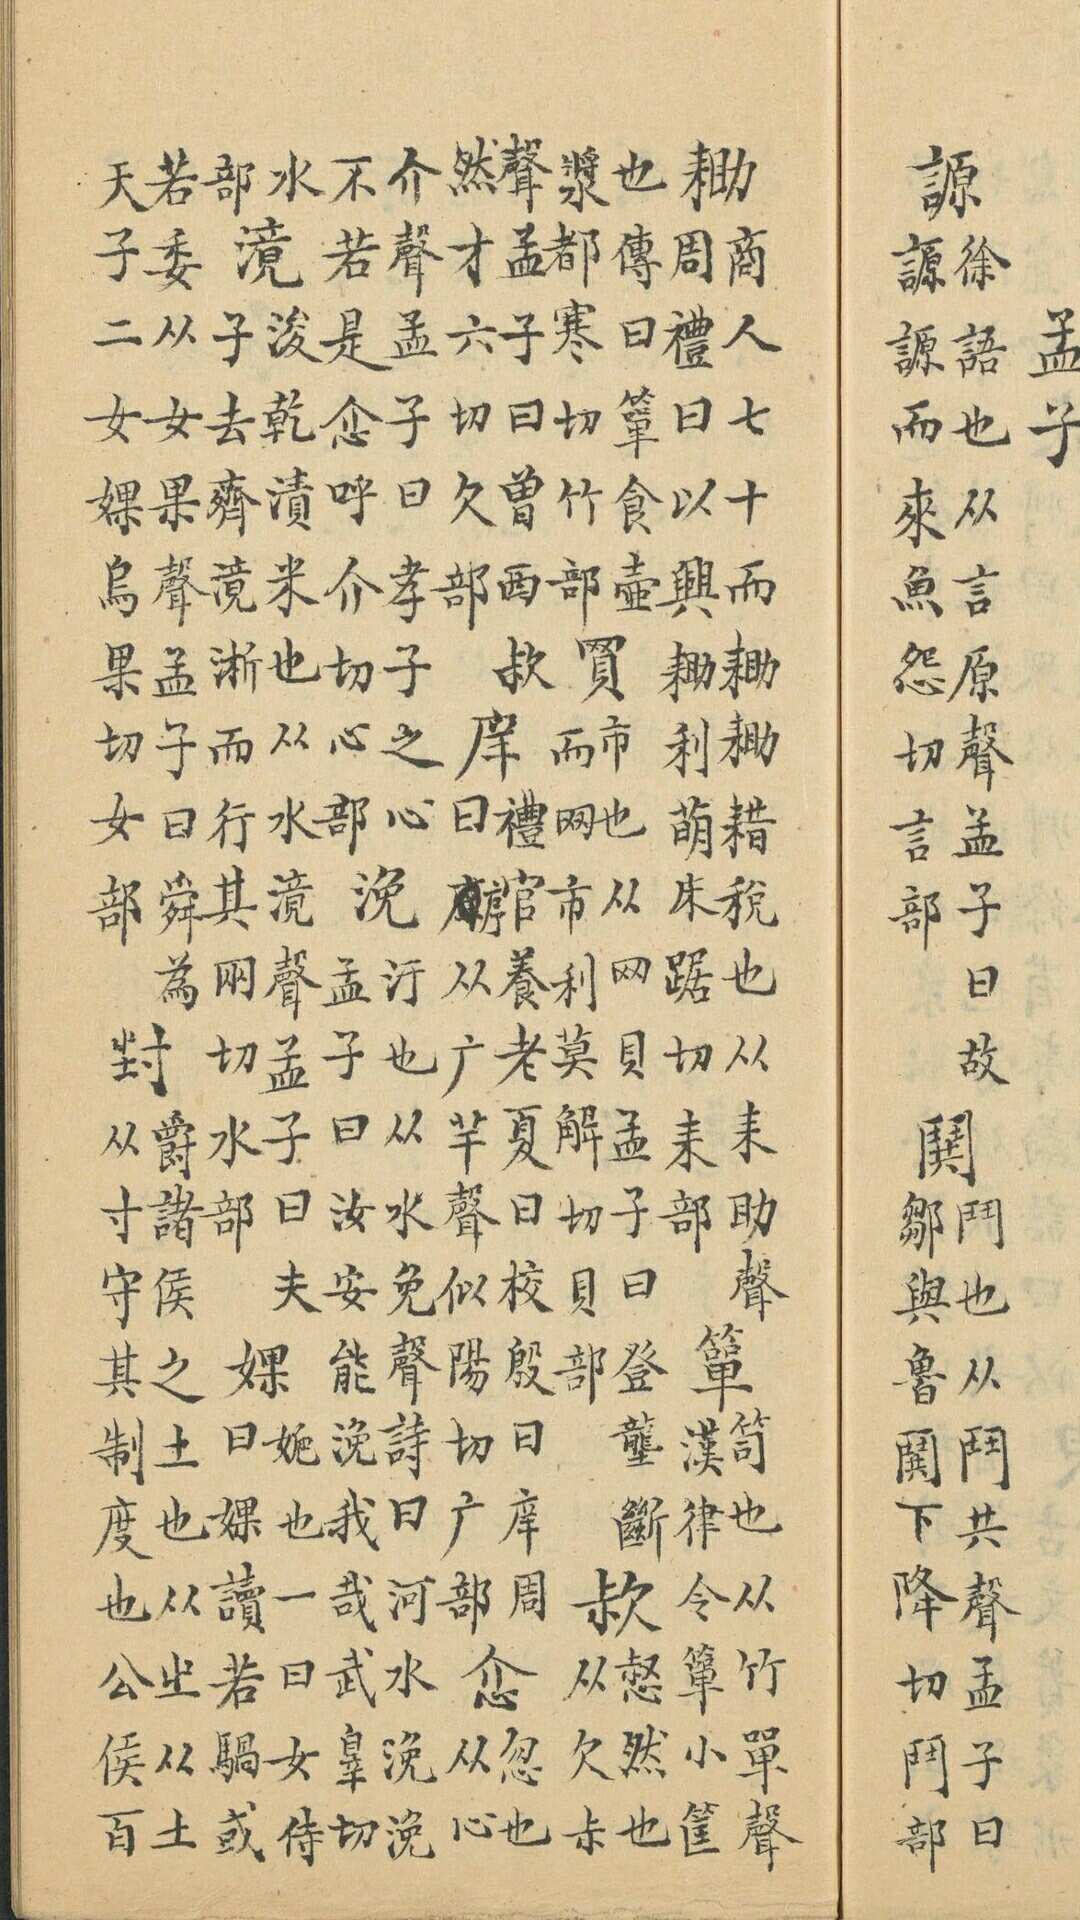 孟子
謜徐語也从言原聲孟子曰故
謜謜而來魚怨切言部
鬨鬥也从鬥共聲孟子曰
鄒與魯鬨下降切鬥部
耡商人七十而耡耡耤稅也从耒助聲
周禮曰以興耡利萌牀踞切耒部
簞笥也从竹單聲
漢律令簞小筐
也傳曰簞食壺
漿都寒切竹部
買市也从网貝孟子曰登壟斷
而网市利莫解切貝部
㰗惄然也
从欠尗
聲孟子曰曾西㰗
然才六切欠部
庠禮官養老夏曰校殷曰庠周
曰序从广羊聲似陽切广部
忽也
从心
介聲孟子曰孝子之心
不若是呼介切心部
浼汙也从水免聲詩曰河水浼浼
孟子曰汝安能浼我武辠切
水
部
滰浚乾漬米也从水竟聲孟子曰夫
子去齊滰淅而行其兩切水部
婐婐也一曰女侍
曰婐讀若騧或
若委从女果聲孟子曰舜為
天子二女婐烏果切女部
封爵諸侯之土也从㞢从土
从寸守其制度也公侯百